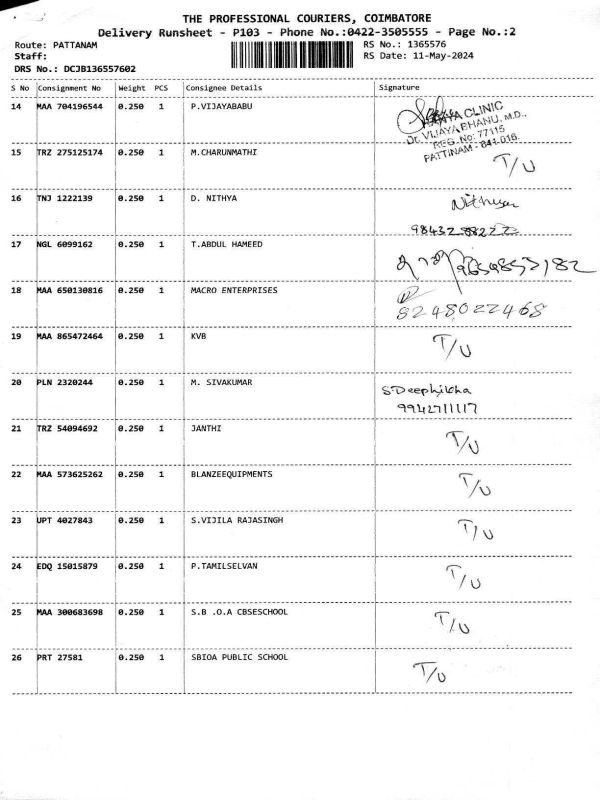 THE PROFESSIONAL COURIERS, COIMBATORE
Delivery Runsheet - P103 - Phone No.:0422-3505555 - Page No.:2
Route: PATTANAM RS No.: 1365576
Staff: RS Date: 11-May-2024
DRS No.: DCJB136557602
S No Consignment No Weight PCS Consignee Details Signature
14 MAA 704196544 0.250 1 P.VIJAYABABU
CLINIC
Dr. VIJAYA BHANU, M.D.,
REG. No: 77115
PATTINAM - 641 016.
15 TRZ 275125174 0.250 1 M.CHARUNMATHI T/U
16 TNJ 1222139 0.250 1 D. NITHYA
17 NGL 6099162 0.250 1 T.ABDUL HAMEED
18 MAA 650130816 0.250 1 MACRO ENTERPRISES
8248022468
19 MAA 865472464 0.250 1 KVB T/U
20 PLN 2320244 0.250 1 M. SIVAKUMAR S.Deephikha
9942711117
21 TRZ 54094692 0.250 1 JANTHI T/U
22 MAA 573625262 0.250 1 BLANZEEQUIPMENTS T/U
23 UPT 4027843 0.250 1 S.VIJILA RAJASINGH T/U
24 EDQ 15015879 0.250 1 P.TAMILSELVAN T/U
25 MAA 300683698 0.250 1 S.B .O.A CBSESCHOOL T/U
26 PRT 27581 0.250 1 SBIOA PUBLIC SCHOOL T/U